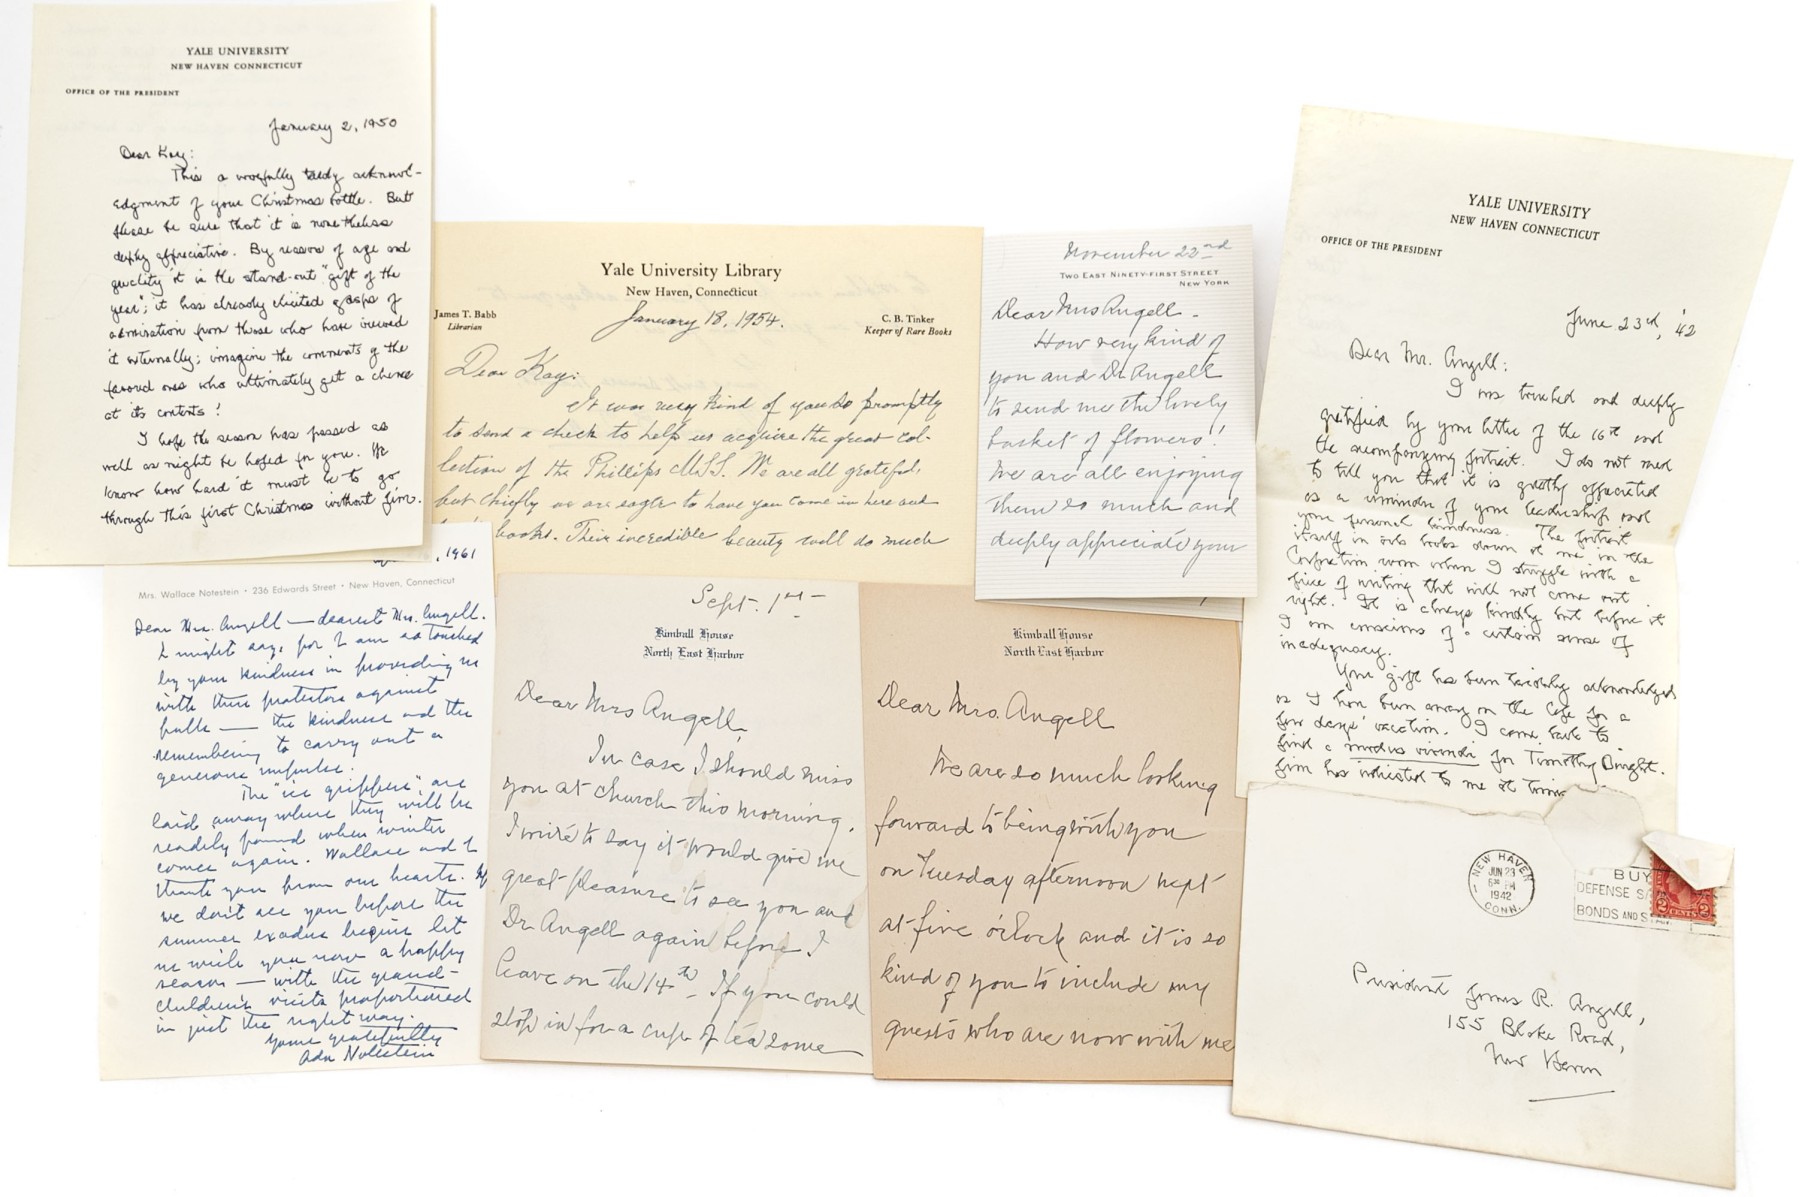 YALE UNIVERSITY
NEW HAVEN CONNECTICUT
OFFICE OF THE PRESIDENT
January 2, 1950
Dear Kay:
This a woefully tardy acknowl-
edgment of your Christmas bottle. But
please be sure that it is none the less
deeply appreciative. By reason of age and
quality it is the stand-out "gift of the
year"; it has already elicited gasps of
admiration from those who have viewed
it externally; imagine the comments of the
favored ones who ultimately get a chance
at its contents!
I hope the season has passed as
well as might be hoped for you. We
know how hard it must be to go
through this first Christmas without him.
Yale University Library
New Haven, Connecticut
James T. Babb
Librarian
C. B. Tinker
Keeper of Rare Books
January 18, 1954.
Dear Kay:
It was very kind of you so promptly
to send a check to help us acquire the great col-
lection of the Phillips MSS. We are all grateful,
but chiefly we are eager to have you come in here and
books. Their incredible beauty will do much
November 22nd
TWO EAST NINETY-FIRST STREET
NEW YORK
Dear Mrs Angell -
How very kind of
you and Dr Angell
to send me the lovely
basket of flowers!
We are all enjoying
them so much and
deeply appreciate your
YALE UNIVERSITY
NEW HAVEN CONNECTICUT
OFFICE OF THE PRESIDENT
June 23rd, '42
Dear Mr. Angell:
I was touched and deeply
gratified by your letter of the 16th and
the accompanying portrait. I do not need
to tell you that it is greatly appreciated
as a reminder of your leadership and
your personal kindness. The portrait
itself in oils looks down at me in the
Corporation room when I struggle with a
piece of writing that will not come out
right. It is always kindly but before it
I am conscious of a certain sense of
inadequacy.
Your gift has been tardily acknowledged
as I have been away on the Cape for a
few days' vacation. I came back to
find a modus vivendi for Timothy Dwight.
him has indicated to me at
, 1961
Mrs. Wallace Notestein • 236 Edwards Street • New Haven, Connecticut
Dear Mrs. Angell — dearest Mrs. Angell.
I might say, for I am so touched
by your kindness in providing us
with these protectors against
falls — the kindness and the
remembering to carry out a
generous impulse.
The "ice grippers" are
laid away where they will be
readily found when winter
comes again. Wallace and I
thank you from our hearts. If
we don't see you before the
summer exodus begins let
us wish you now a happy
season — with the grand-
children's visits proportioned
in just the right way.
Yours gratefully
Ada Notestein
Sept. 1st
Kimball House
North East Harbor
Dear Mrs Angell,
In case I should miss
you at church this morning,
I write to say it would give me
great pleasure to see you and
Dr Angell again before I
leave on the 14th. If you could
stop in for a cup of tea some
Kimball House
North East Harbor
Dear Mrs. Angell
We are so much looking
forward to being with you
on Tuesday afternoon next
at five o'clock and it is so
kind of you to include my
guests who are now with me
NEW HAVEN
JUN 23
6 30 PM
1942
CONN.
BUY
DEFENSE SA
BONDS AND STA
2 CENTS 2
President James R. Angell,
155 Blake Road,
New Haven